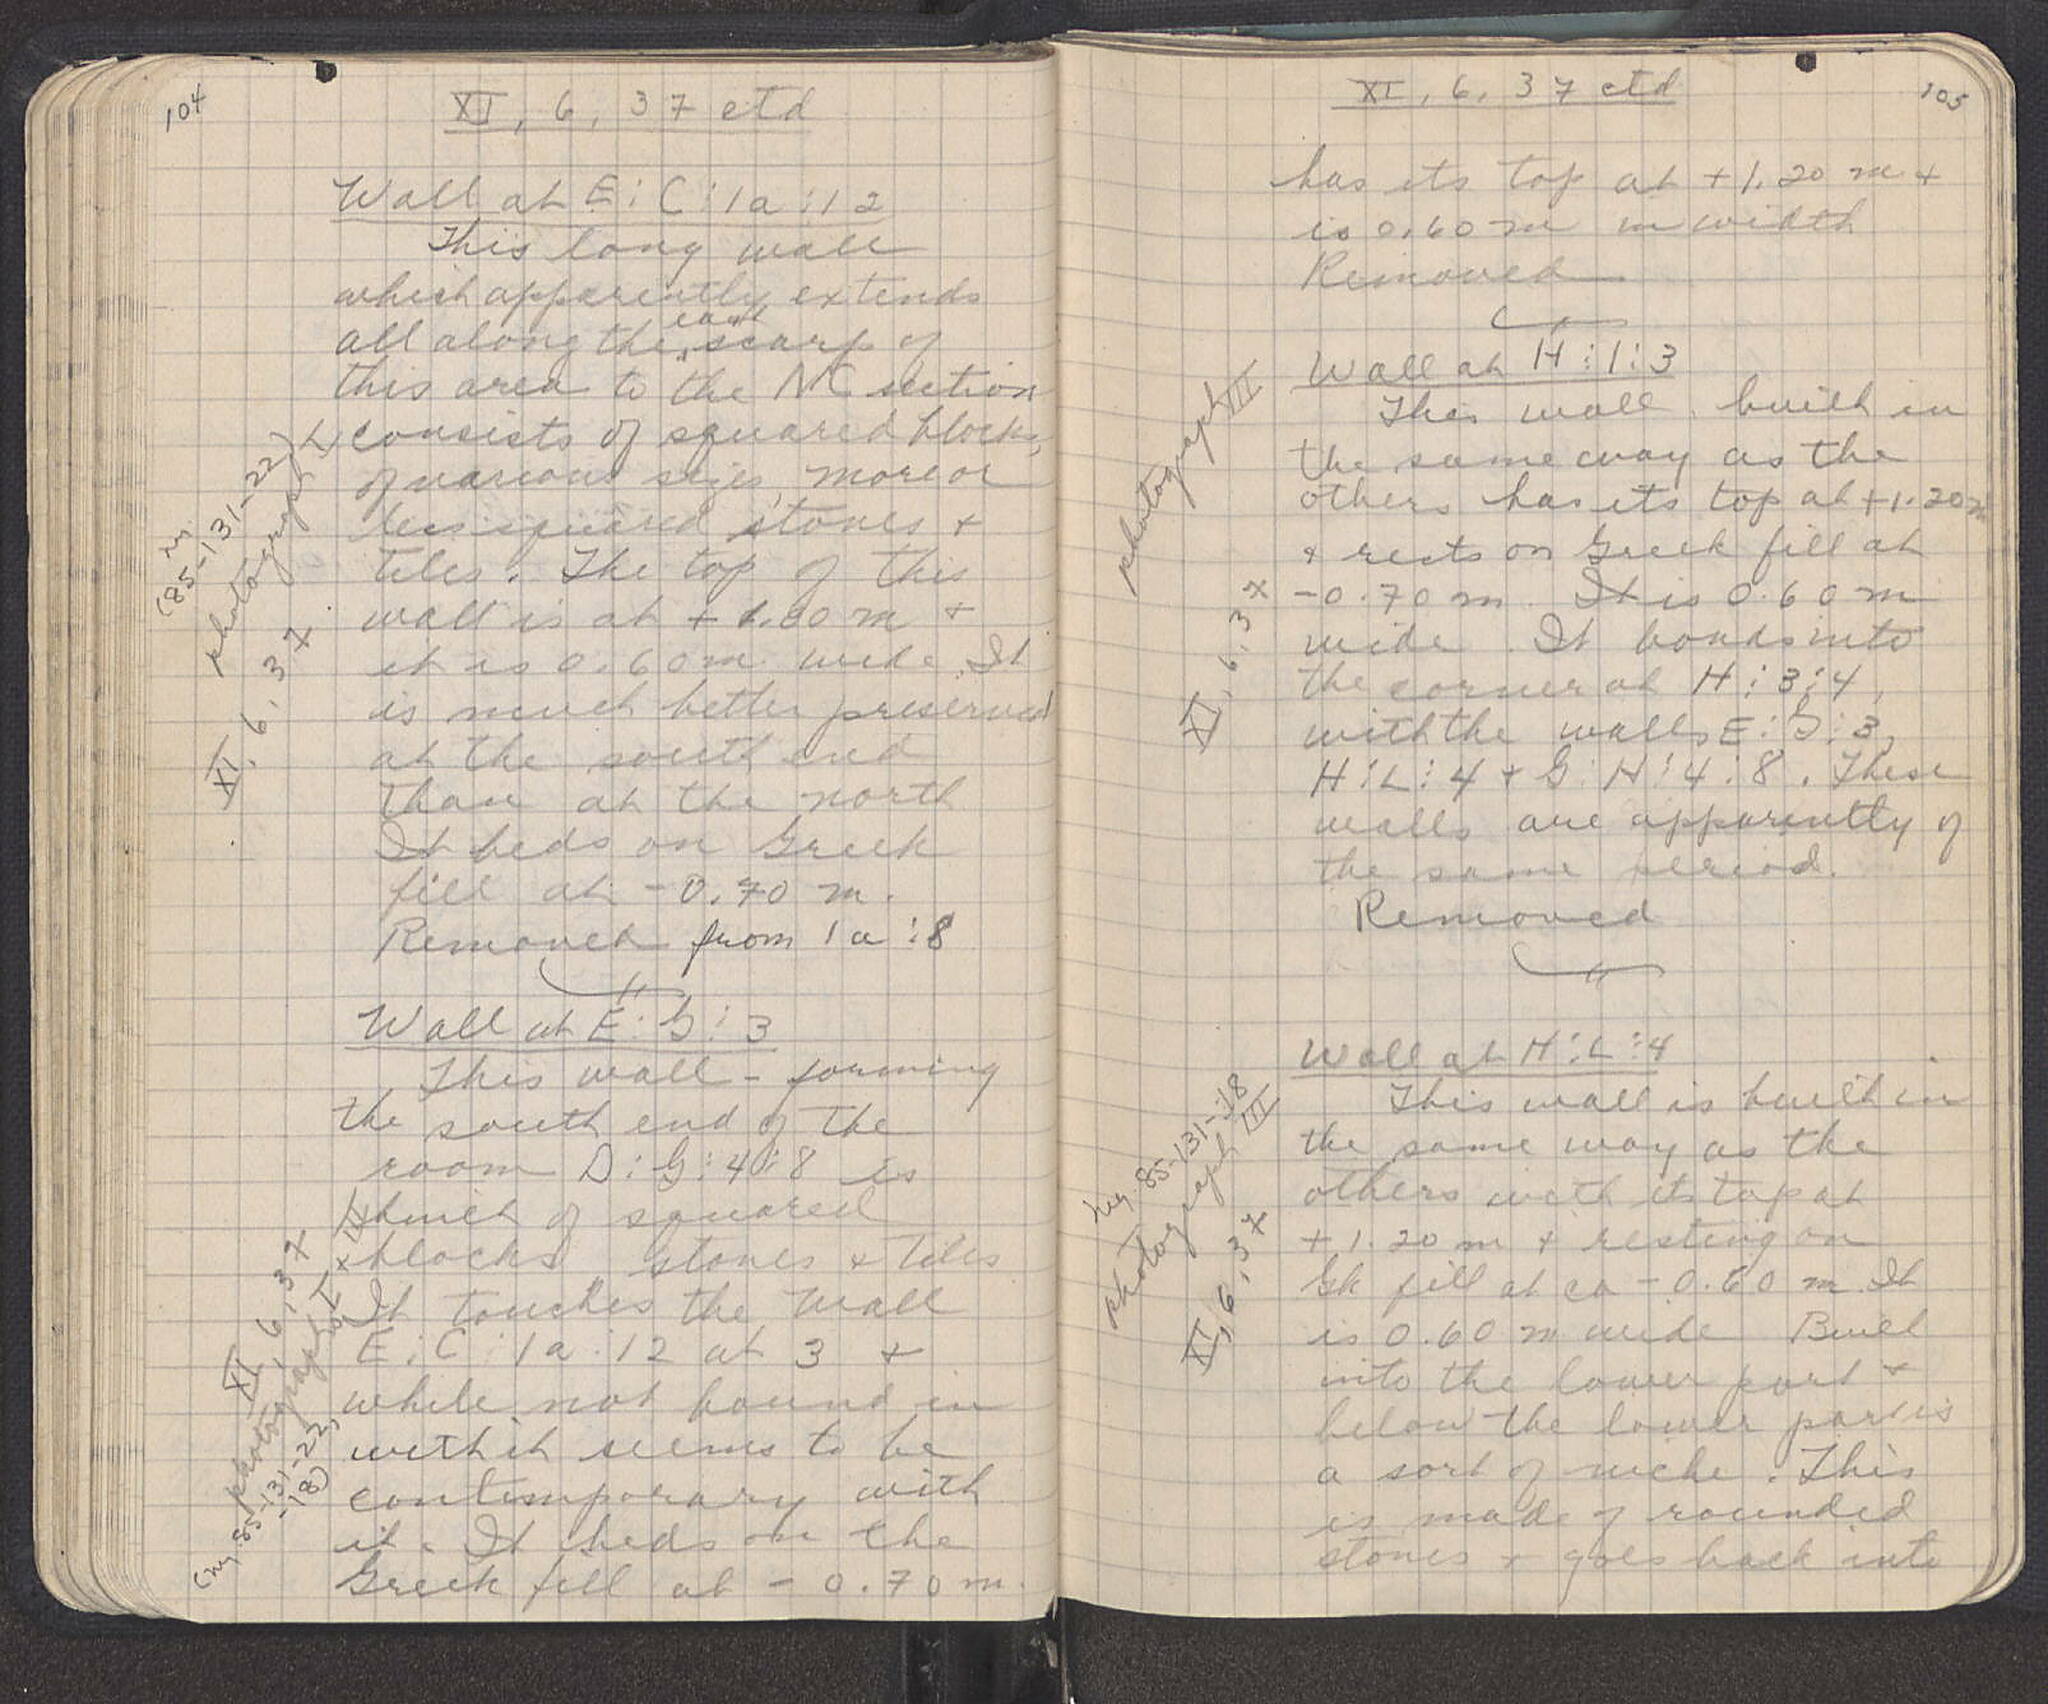 104
XI, 6, 37 ctd
Wall at E:C:1a:12
This long wall
which apparently extends
all along the east scarp of
this area to the NC section
consists of squared blocks,
of various sizes, more or
less squared stones +
tiles. The top of this
wall is at + 1.00 m +
it is 0.60 m wide. It
is much better preserved
at the south end
than at the north
It beds on Greek
fill at -0.70 m.
Removed from 1a:8
(85-131-22)
photograph I
XI, 6, 37
Wall at E:G:3
This wall - forming
the south end of the
room D:G:4:8 is
built of squared
blocks stones + tiles
It touches the wall
E:C:1a:12 at 3 +
while not bound in
with it seems to be
contemporary with
it. It beds on the
Greek fill at - 0.70 m.
XI, 6, 37
photographs I + III
(neg. 85-131-22,
-18)
105
XI, 6, 37 ctd
has its top at +1.20 m +
is 0.60 m in width
Removed
Wall at H:1:3
This wall, built in
the same way as the
others has its top at +1.20 m
+ rests on Greek fill at
-0.70 m. It is 0.60 m
wide. It bonds into
the corner at H:3:4,
with the walls E:G:3,
H:L:4 + G:H:4:8. These
walls are apparently of
the same period.
Removed
photograph III
XI, 6, 37
Wall at H:L:4
This wall is built in
the same way as the
others with its top at
+ 1.20 m + resting on
Gk fill at ca - 0.60 m. It
is 0.60 m wide Built
into the lower part +
below the lower part is
a sort of niche. This
is made of rounded
stones + goes back into
neg. 85-131-18
photograph III
XI, 6, 37